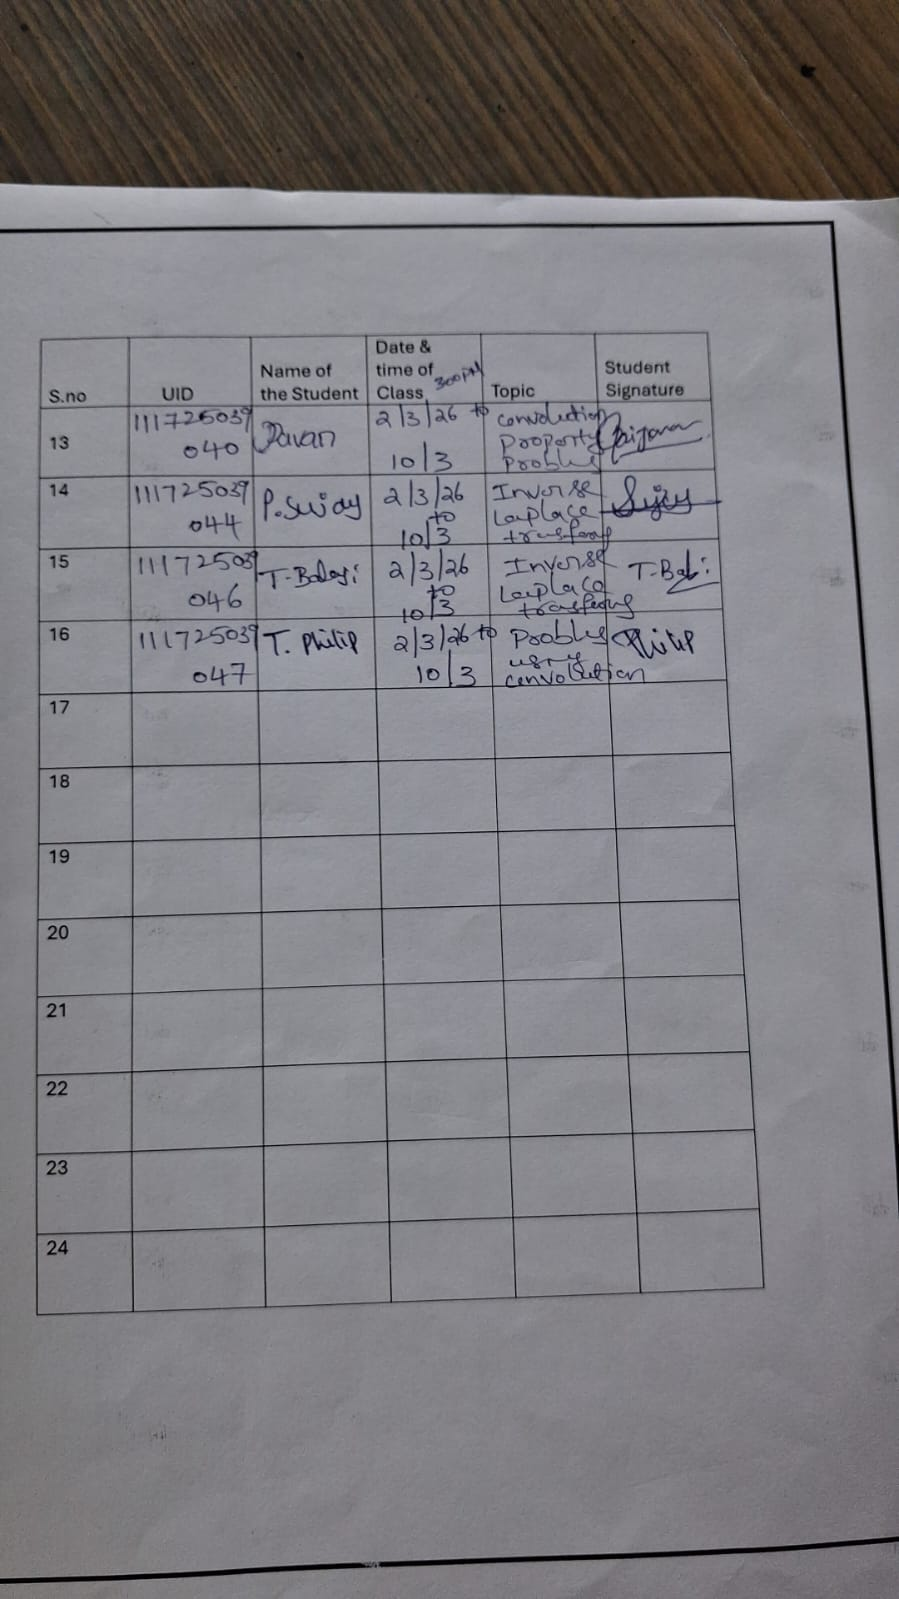 S.no
UID
Name of
the Student
Date &
time of
Class 300PM
Topic
Student
Signature
13
111725039
040
Pavan
2/3/26 to
10/3
convolution
Property
Problms
14
111725039
044
P.Sujay
2/3/26
to
10/3
Inverse
Laplace
15
111725039
046
T-Balaji
2/3/26
to
10/3
Inverse
Laplace
T-Bali
16
111725039
047
T. Philip
2/3/26 to
10/3
Problms
using
convolution
Philip
17
18
19
20
21
22
23
24